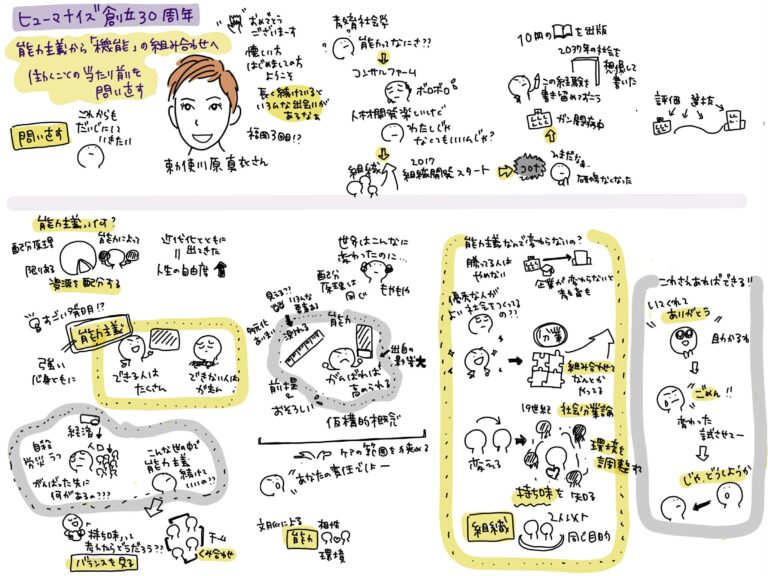 ヒューマナイズ創立30周年
能力主義から「機能」の組み合わせへ
働くことの当たり前を
問い直す
これからも
だいじにして
いきたい
問い直す
勅使川原真衣さん
おめでとう
ございまーす
懐しい方
はじめましての方
ようこそ
長く続けていると
いろんな出会いが
あるなぁ
福岡3回目!?
教育社会学
能力ってなにさ??
コンサルファーム
ボロボロ
人材開発楽しいけど
わたしじゃ
なくてもいいんじゃ?
組織
2017
組織開発スタート
コロナ
10冊の
を出版
2037年の社会を
想像して
書いた
この経験を
書き留めておこう
ガン闘病中
確保なくなった
評価
選抜
能力主義って何?
配分原理
能力によって
限りある
資源を配分する
近代化とともに
出てきた
人生の自由度
すごい発明!?
能力主義
強い
心身ともに
できる人は
たくさん
できない人は
がまん
自殺
労災
うつ
経済
人口
がんばった先に
何があるの???
こんな世の中で
能力主義
続けて
いいの??
持ち味って
考えたらどうだろう??
バランスを見る
チーム
くみ合わせ
世界はこんなに
変わったのに…
配分
原理は
同じ
もやもや
測れる
能力
前提
おそろしい
がんばれば
高められる
出自の
影響大
仮構的概念
ケアの範囲を狭める
あなたの責任でしょー
文脈による
能力
相性
環境
能力主義なんで変わらないの?
勝ってる人は
やめない
企業が変わらないと
教育も
優秀な人が
よい社会をつくってるの??
分業
組み合わせて
なんとか
やってる
19世紀
社会分業論
変える
環境を
調整
持ち味を知る
組織
2人以上
同じ目的
これさえあればできる!!
いてくれて
ありがとう
自分から
ごめん!!
変わった
試させてー
じゃ、どうしようか